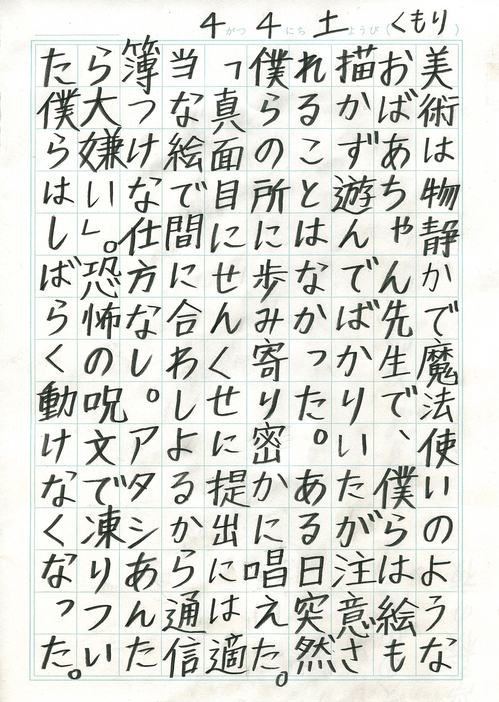 4がつ4にち土ようび(くもり)
美術は物静かで魔法使いのような
おばあちゃん先生で、僕らは絵も
描かず遊んでばかりいたが注意さ
れることはなかった。ある日突然
僕らの所に歩み寄り密かに唱えた。
「真面目にせんくせに提出には適
当な絵で間に合わしよるから通信
簿つけな仕方なし。アタシあんた
ら大嫌い」。恐怖の呪文で凍りつい
た僕らはしばらく動けなくなった。